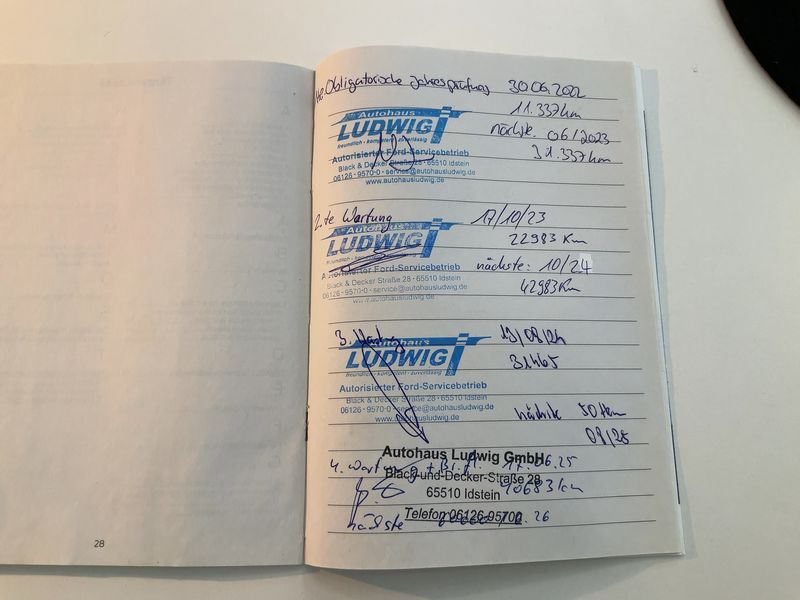 Obligatorische Jahresprüfung 30.06.2022
11.337km
nächste. 06/2023
31.337km
Autohaus
LUDWIG
freundlich · kompetent · zuverlässig
Autorisierter Ford-Servicebetrieb
Black & Decker Straße 28 · 65510 Idstein
06126 - 9570-0 · service@autohausludwig.de
www.autohausludwig.de
2.te Wartung 17/10/23
22983 Km
nächste: 10/24
42983 Km
Autohaus
LUDWIG
freundlich · kompetent · zuverlässig
Autorisierter Ford-Servicebetrieb
Black & Decker Straße 28 · 65510 Idstein
06126 - 9570-0 · service@autohausludwig.de
www.autohausludwig.de
3. Wartung 19/08/24
31465
nächste 50tkm
08/25
Autohaus
LUDWIG
freundlich · kompetent · zuverlässig
Autorisierter Ford-Servicebetrieb
Black & Decker Straße 28 · 65510 Idstein
06126 - 9570-0 · service@autohausludwig.de
www.autohausludwig.de
Autohaus Ludwig GmbH
Black-und-Decker-Straße 28
65510 Idstein
Telefon 06126-95700
4. Wartung + 17.06.25
40683 km
nächste 26
28